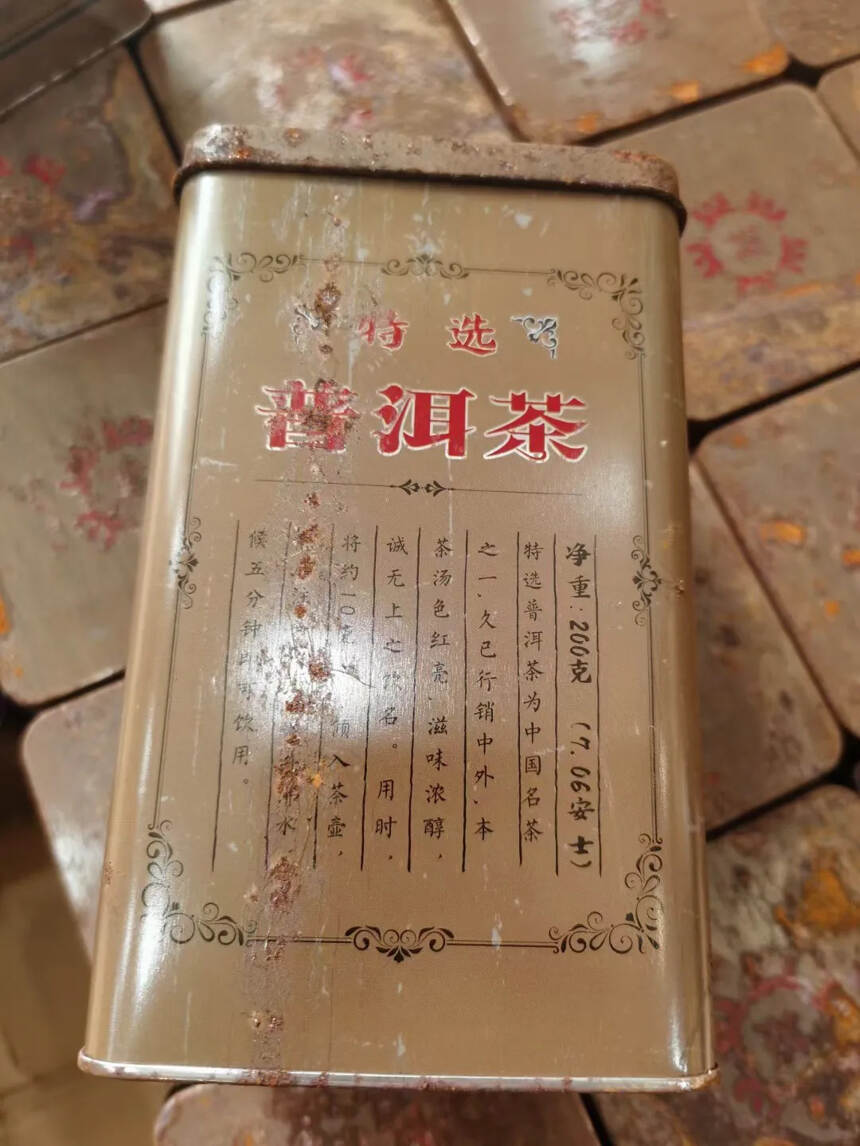 特选
普洱茶
净重：200克（7.06安士）
特选普洱茶为中国名茶
之一、久已行销中外、本
茶汤色红亮、滋味浓醇，
诚无上之名。用时，
将约10倾入茶壶，
水
候五分钟饮用。